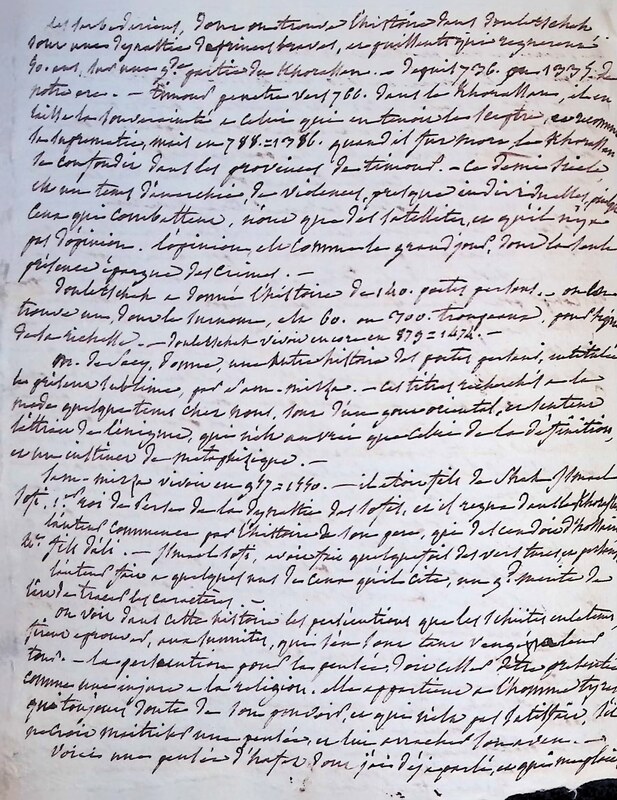 les sarbedariens, dont on trouve l'histoire dans douletschah
sont une dynastie de princes braves, et puissants qui regnerent
50. ans, sur une gde partie du Khorassan. - depuis 736. ou 1335. de
notre ere. - timour penetre vers 766. dans le Khorassan, il en
laisse la souveraineté a celui qui en tenoit le sceptre, et reconnut
la suprematie, mais en 788.=1386. quand il fut mort, le Khorassan
se confondit dans les provinces de timour. - Ce demi siecle,
est un tems d'anarchie, de violences, presque individuelles, puisque
ceux qui combattent, n'ont que des satellites, et qu'il n'y a
pas d'opinion. l'opinion, est comme le grand jour, dont la seule
présence épargne des crimes. -
douletschah a donné l'histoire de 140. poetes persans. - on en
trouve un, dont le surnom, est 60. ou 700. troupeaux, pour signe
de sa richesse. - douletschah vivoit encore en 879=1474. -
mr. de Sacy, donne, une autre histoire des poetes persans, intitulée
le présent sublime, par Sam-mirza. - ces titres recherchés a la
mode quelque tems chez nous, sont d'un gout oriental, et sentent
l'attrait de l'énigme, qui n'est au vrai que celui de la definition,
et un instinct de métaphysique. -
Sam-mirza vivoit en 957=1550. - il étoit fils de Shah Ismael
Sofi, 1er roi de Perse de la dynastie des Sofis, et il regna dans le Khorassan
l'auteur commence par l'histoire de son pere, qui descendoit d'hossein
2d. fils d'ali. - Ismael Sofi, avoit fait quelque fois des vers turcs, et persans,
l'auteur fait a quelques uns de ceux qu'il cite, un gd merite de
l'art de tracer les caractères. -
on voit dans cette histoire les persécutions que les schiites en leur
firent éprouver, aux sunnites, qui s'en sont tant vengés a leur
tour. - la persécution pour la pensée, doit celle d'etre présentée
comme une injure a la religion. elle appartient a l'homme tyran
que toujours doute de son pouvoir, et qui n'est pas satisfait, s'il
ne croit maitriser une pensée, et lui arracher son aveu. -
Voici une pensée d'hafiz dont j'ai déja parlé, et qui me plait